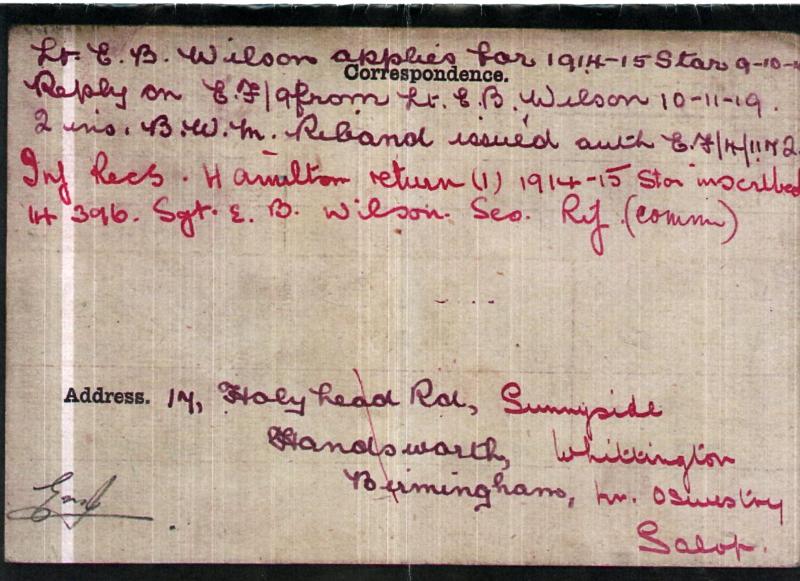 Lt. E. B. Wilson applies for 1914-15 Star 9-10-
Correspondence.
Reply on E.F/9 from Lt. E. B. Wilson 10-11-19.
2 ins. B.W.M. Riband issued auth E.F/4/1172.
Inf Recs. Hamilton return (1) 1914-15 Star inscribed
14396. Sgt. E. B. Wilson. Sco. Rif. (comm)
Address. 17, Holyhead Rd, Sunnyside
Handsworth, Whittington
Birmingham, nr. Oswestry
Salop.